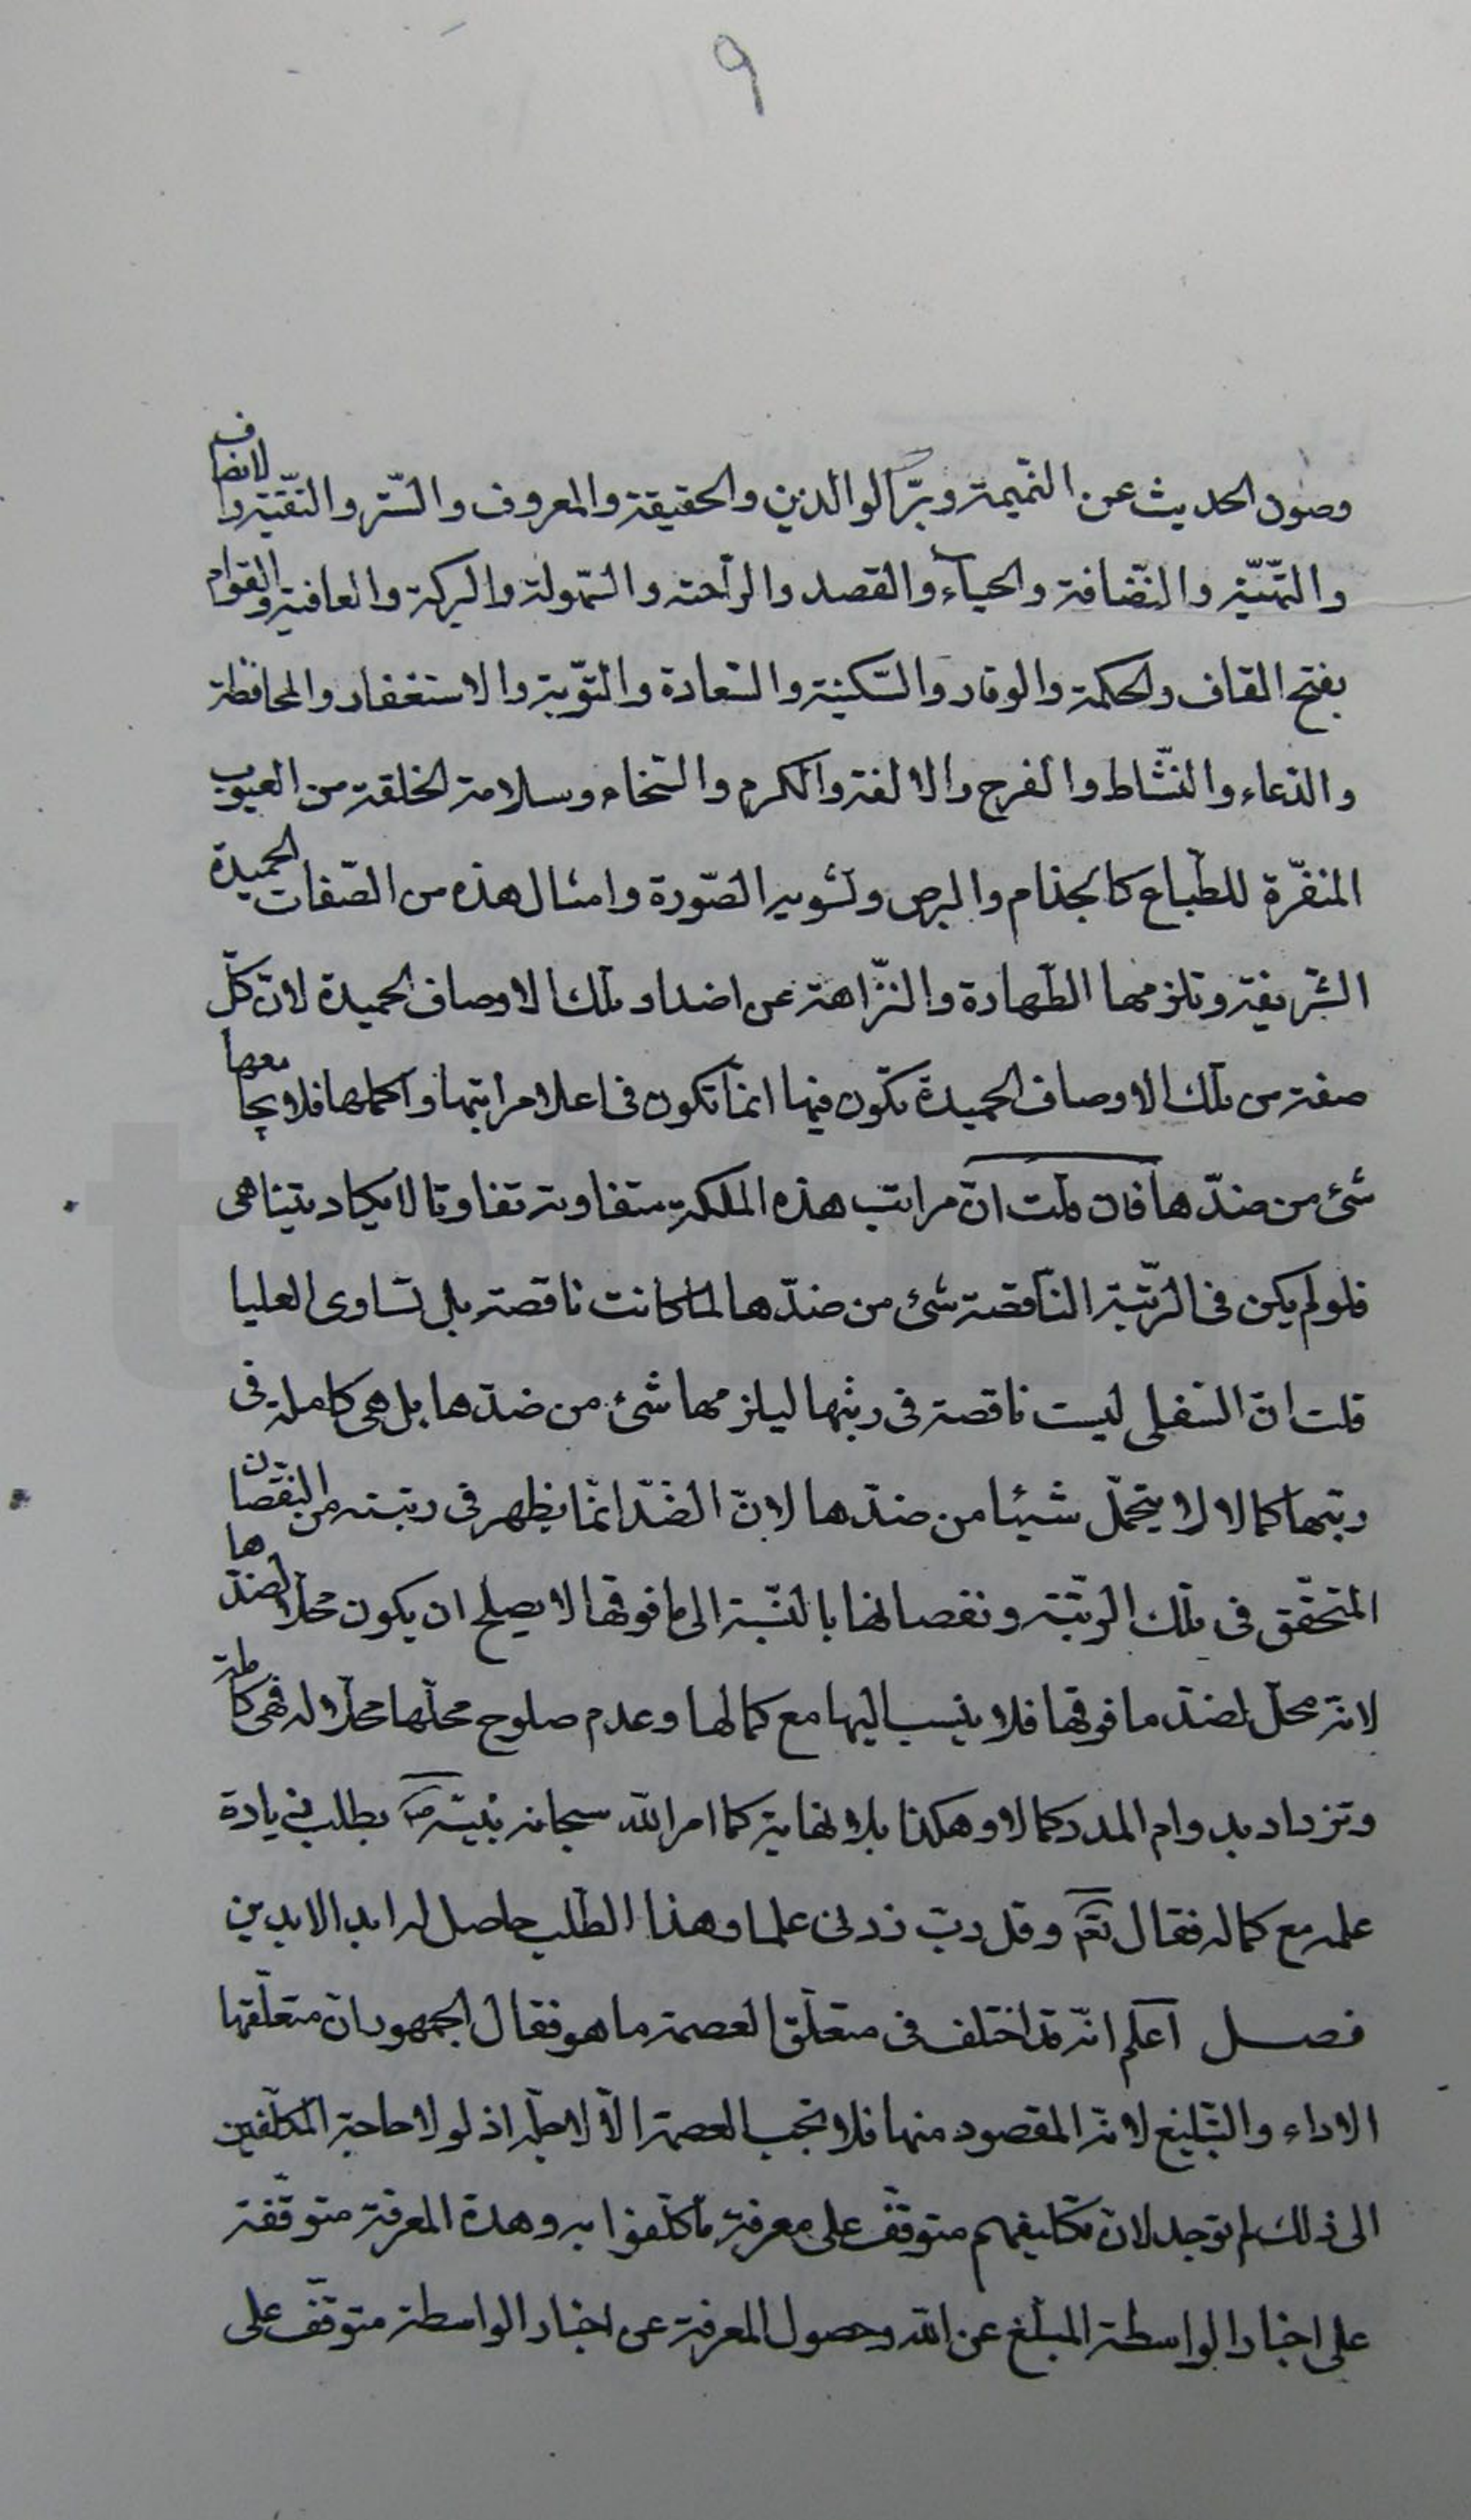 ٩
وصون الحديث عن النّميمة وبرّ الوالدين والحقيقة والمعروف والسّتر والتقيّة والانصاف
والتّهيّة والنّضافة والحيآء والقصد والرّاحة والسّهولة والبركة والعافية والقوام
بفتح القاف والحكمة والوقار والسّكينة والسّعادة والتّوبة والاستغفار والمحافظة
والدّعاء والنّشاط والفرح والالفة والكرم والسّخاء وسلامة الخلقة من العيوب
المنفّرة للطّباع كالجذام والبرص وتشويه الصّورة وامثال هذه من الصّفات الحميدة
الشّريفة وتلزمها الطّهارة والنّزاهة عن اضداد تلك الاوصاف الحميدة لانّ كلّ
صفة من تلك الاوصاف الحميدة تكون فيها انّما تكون فى اعلا مراتبها واكملها فلا يجامعها
شئ من ضدّها فان قلت انّ مراتب هذه الملكة متفاوتة تفاوتا لا يكاد يتناهى
فلو لم يكن فى الرّتبة النّاقصة شئ من ضدّها لما كانت ناقصة بل تساوى العليا
قلت انّ السّفلى ليست ناقصة فى رتبها ليلزمها شئ من ضدّها بل هى كاملة فى
رتبها كمالا لا يتحمّل شيئا من ضدّها لانّ الضّدّ انّما يظهر فى رتبته من النّقصان
المتحقّق فى تلك الرّتبة ونقصانها بالنّسبة الى ما فوقها لا يصلح ان يكون محلّا لضدّها
لانّه محلّ لضدّ ما فوقها فلا ينسب اليها مع كمالها وعدم صلوح محلّها محلّا له فهى كاملة
وتزداد بدوام المدد كمالا وهكذا بلا نهاية كما امر الله سبحانه نبيّه ص بطلب زيادة
علمه مع كماله فقال تعم وقل ربّ زدنى علما وهذا الطّلب حاصل له ابد الابدين
فصل اعلم انّه قد اختلف فى متعلّق العصمة ما هو فقال الجمهور انّ متعلّقها
الاداء والتّبليغ لانّه المقصود منها فلا تجب العصمة الّا لاجله اذ لولا حاجة المكلّفين
الى ذلك لم توجد لانّ تكليفهم متوقّف على معرفة ما كلّفوا به وهذة المعرفة متوقّفة
على اخبار الواسطة المبلّغ عن الله وحصول المعرفة عن اخبار الواسطة متوقّف على